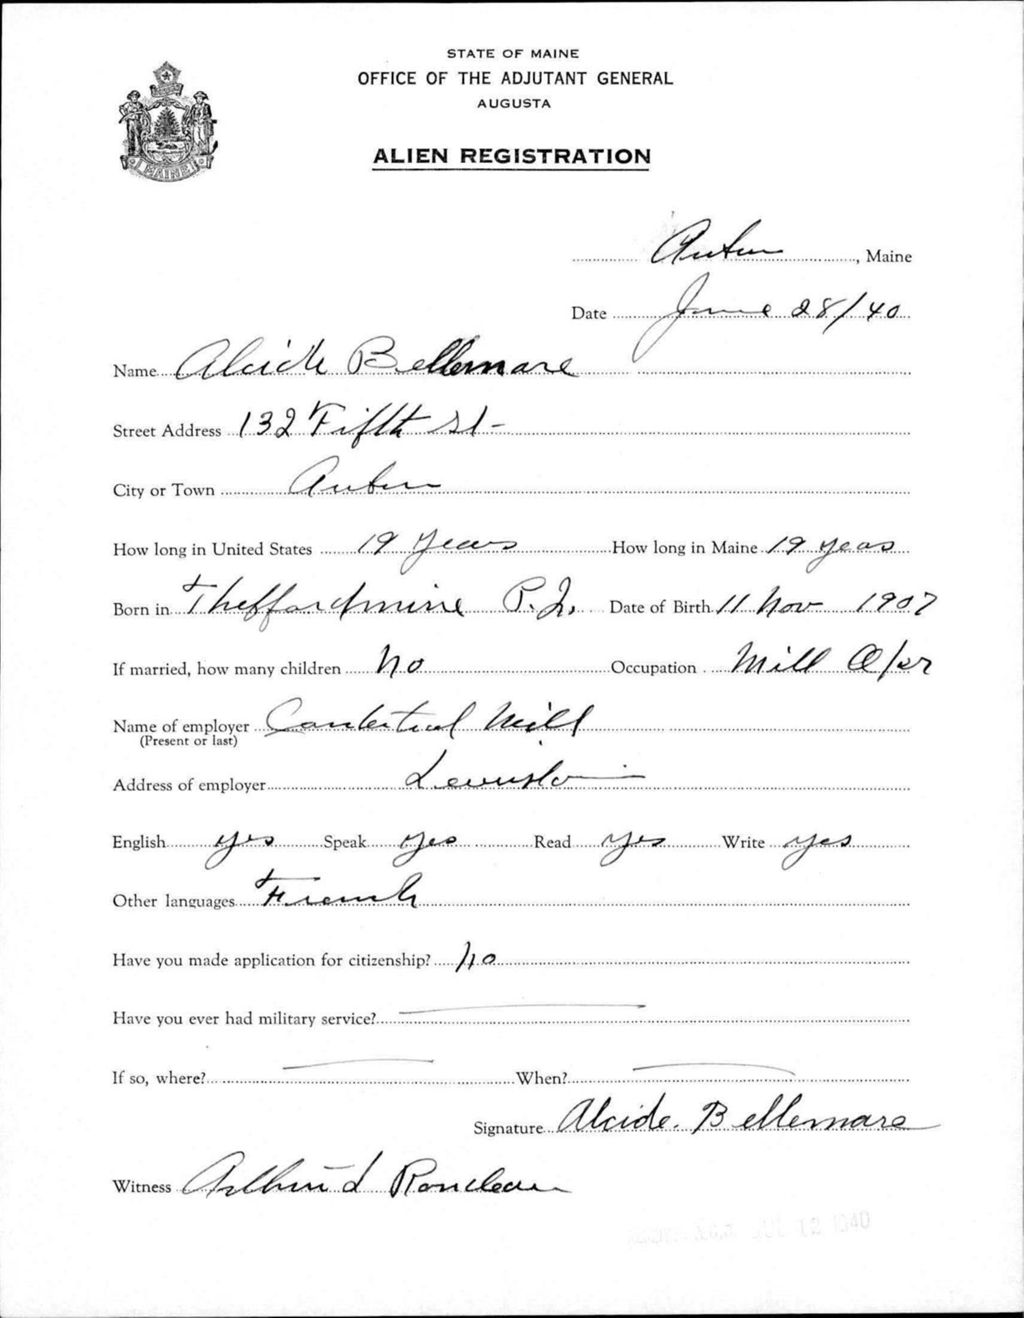 STATE OF MAINE
OFFICE OF THE ADJUTANT GENERAL
AUGUSTA
ALIEN REGISTRATION
MAINE
Auburn, Maine
Date June 28/40
Name Alcide Bellemare
Street Address 132 Fifth St-
City or Town Auburn
How long in United States 19 years How long in Maine 19 years
Born in Theffordmine P.Q. Date of Birth 11 Nov 1907
If married, how many children No Occupation Mill Oper
Name of employer Mill
(Present or last)
Address of employer Lewiston
English yes Speak yes Read yes Write yes
Other languages French
Have you made application for citizenship? No
Have you ever had military service?
If so, where? When?
Signature Alcide Bellemare
Witness
JUL 12 1940